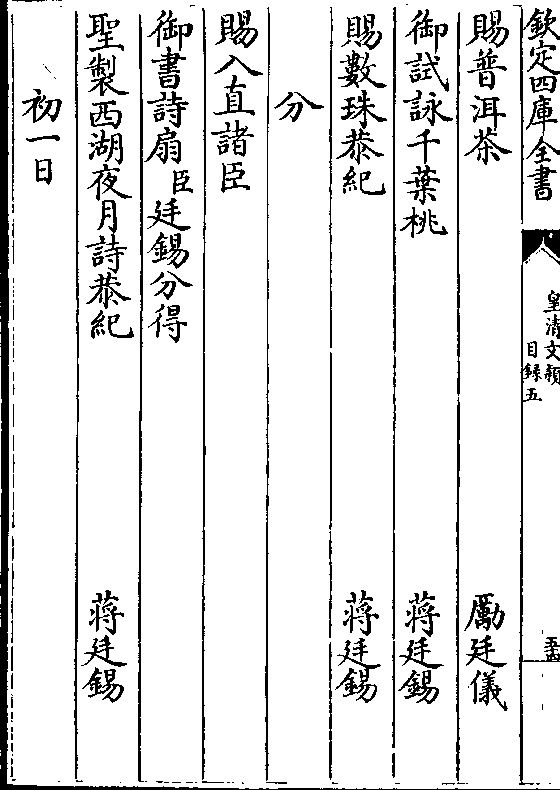 欽定四庫全書
皇清文穎
目錄五
五四
賜普洱茶 勵廷儀
御試詠千葉桃 蔣廷錫
賜數珠恭紀 蔣廷錫
分
賜入直諸臣
御書詩扇臣廷錫分得
聖製西湖夜月詩恭紀 蔣廷錫
初一日